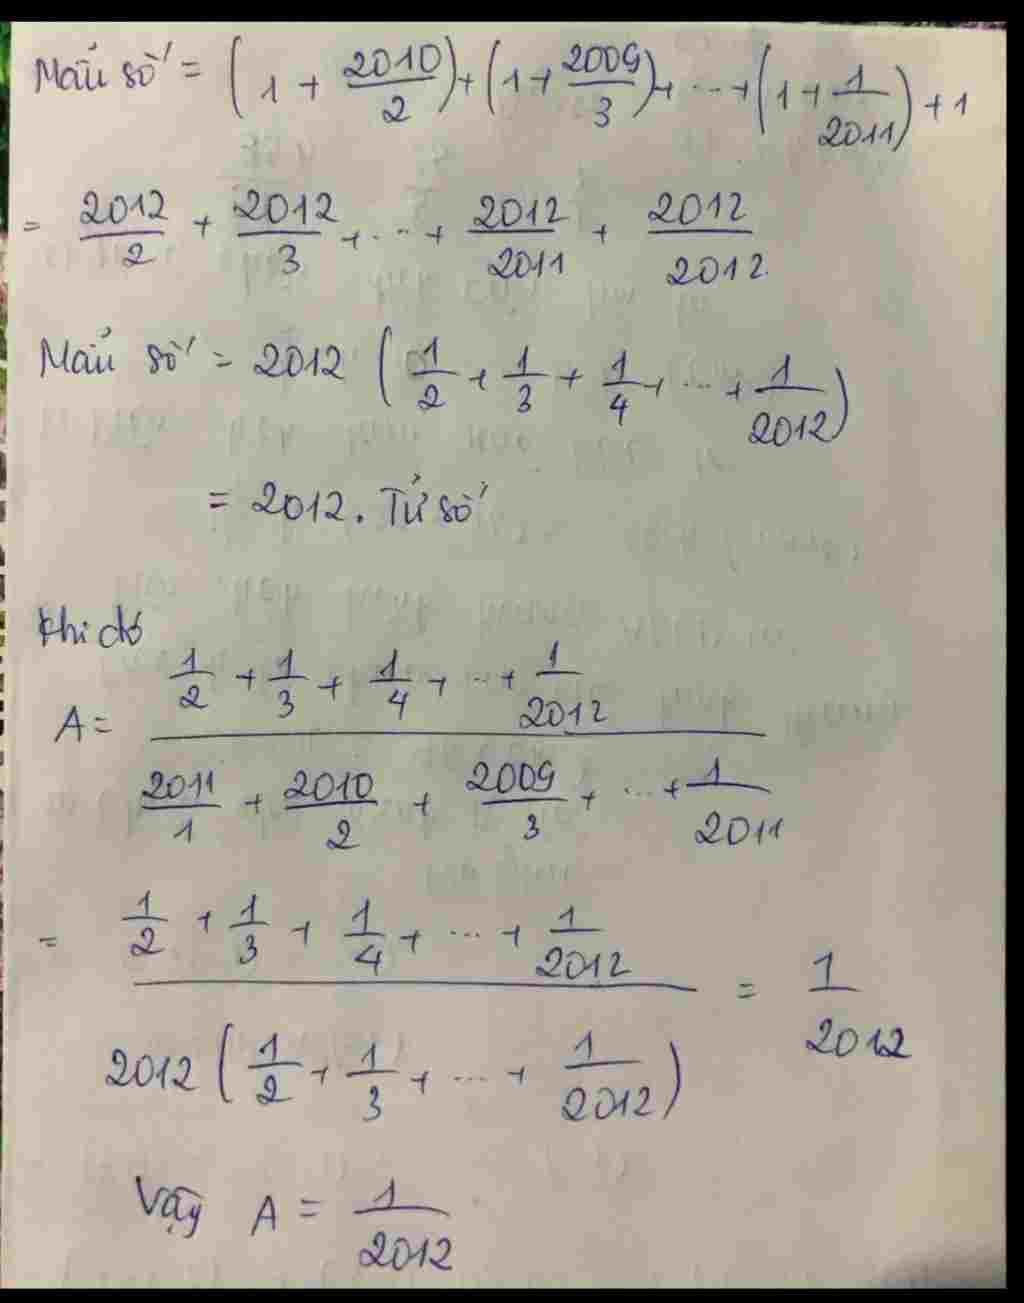 Mẫu số = (1 + 2010/2) + (1 + 2009/3) + ... + (1 + 1/2011) + 1
= 2012/2 + 2012/3 + ... + 2012/2011 + 2012/2012
Mẫu số = 2012 (1/2 + 1/3 + 1/4 + ... + 1/2012)
= 2012. Tử số
Khi đó
A = (1/2 + 1/3 + 1/4 + ... + 1/2012) / (2011/1 + 2010/2 + 2009/3 + ... + 1/2011)
= (1/2 + 1/3 + 1/4 + ... + 1/2012) / (2012 (1/2 + 1/3 + ... + 1/2012)) = 1/2012
Vậy A = 1/2012